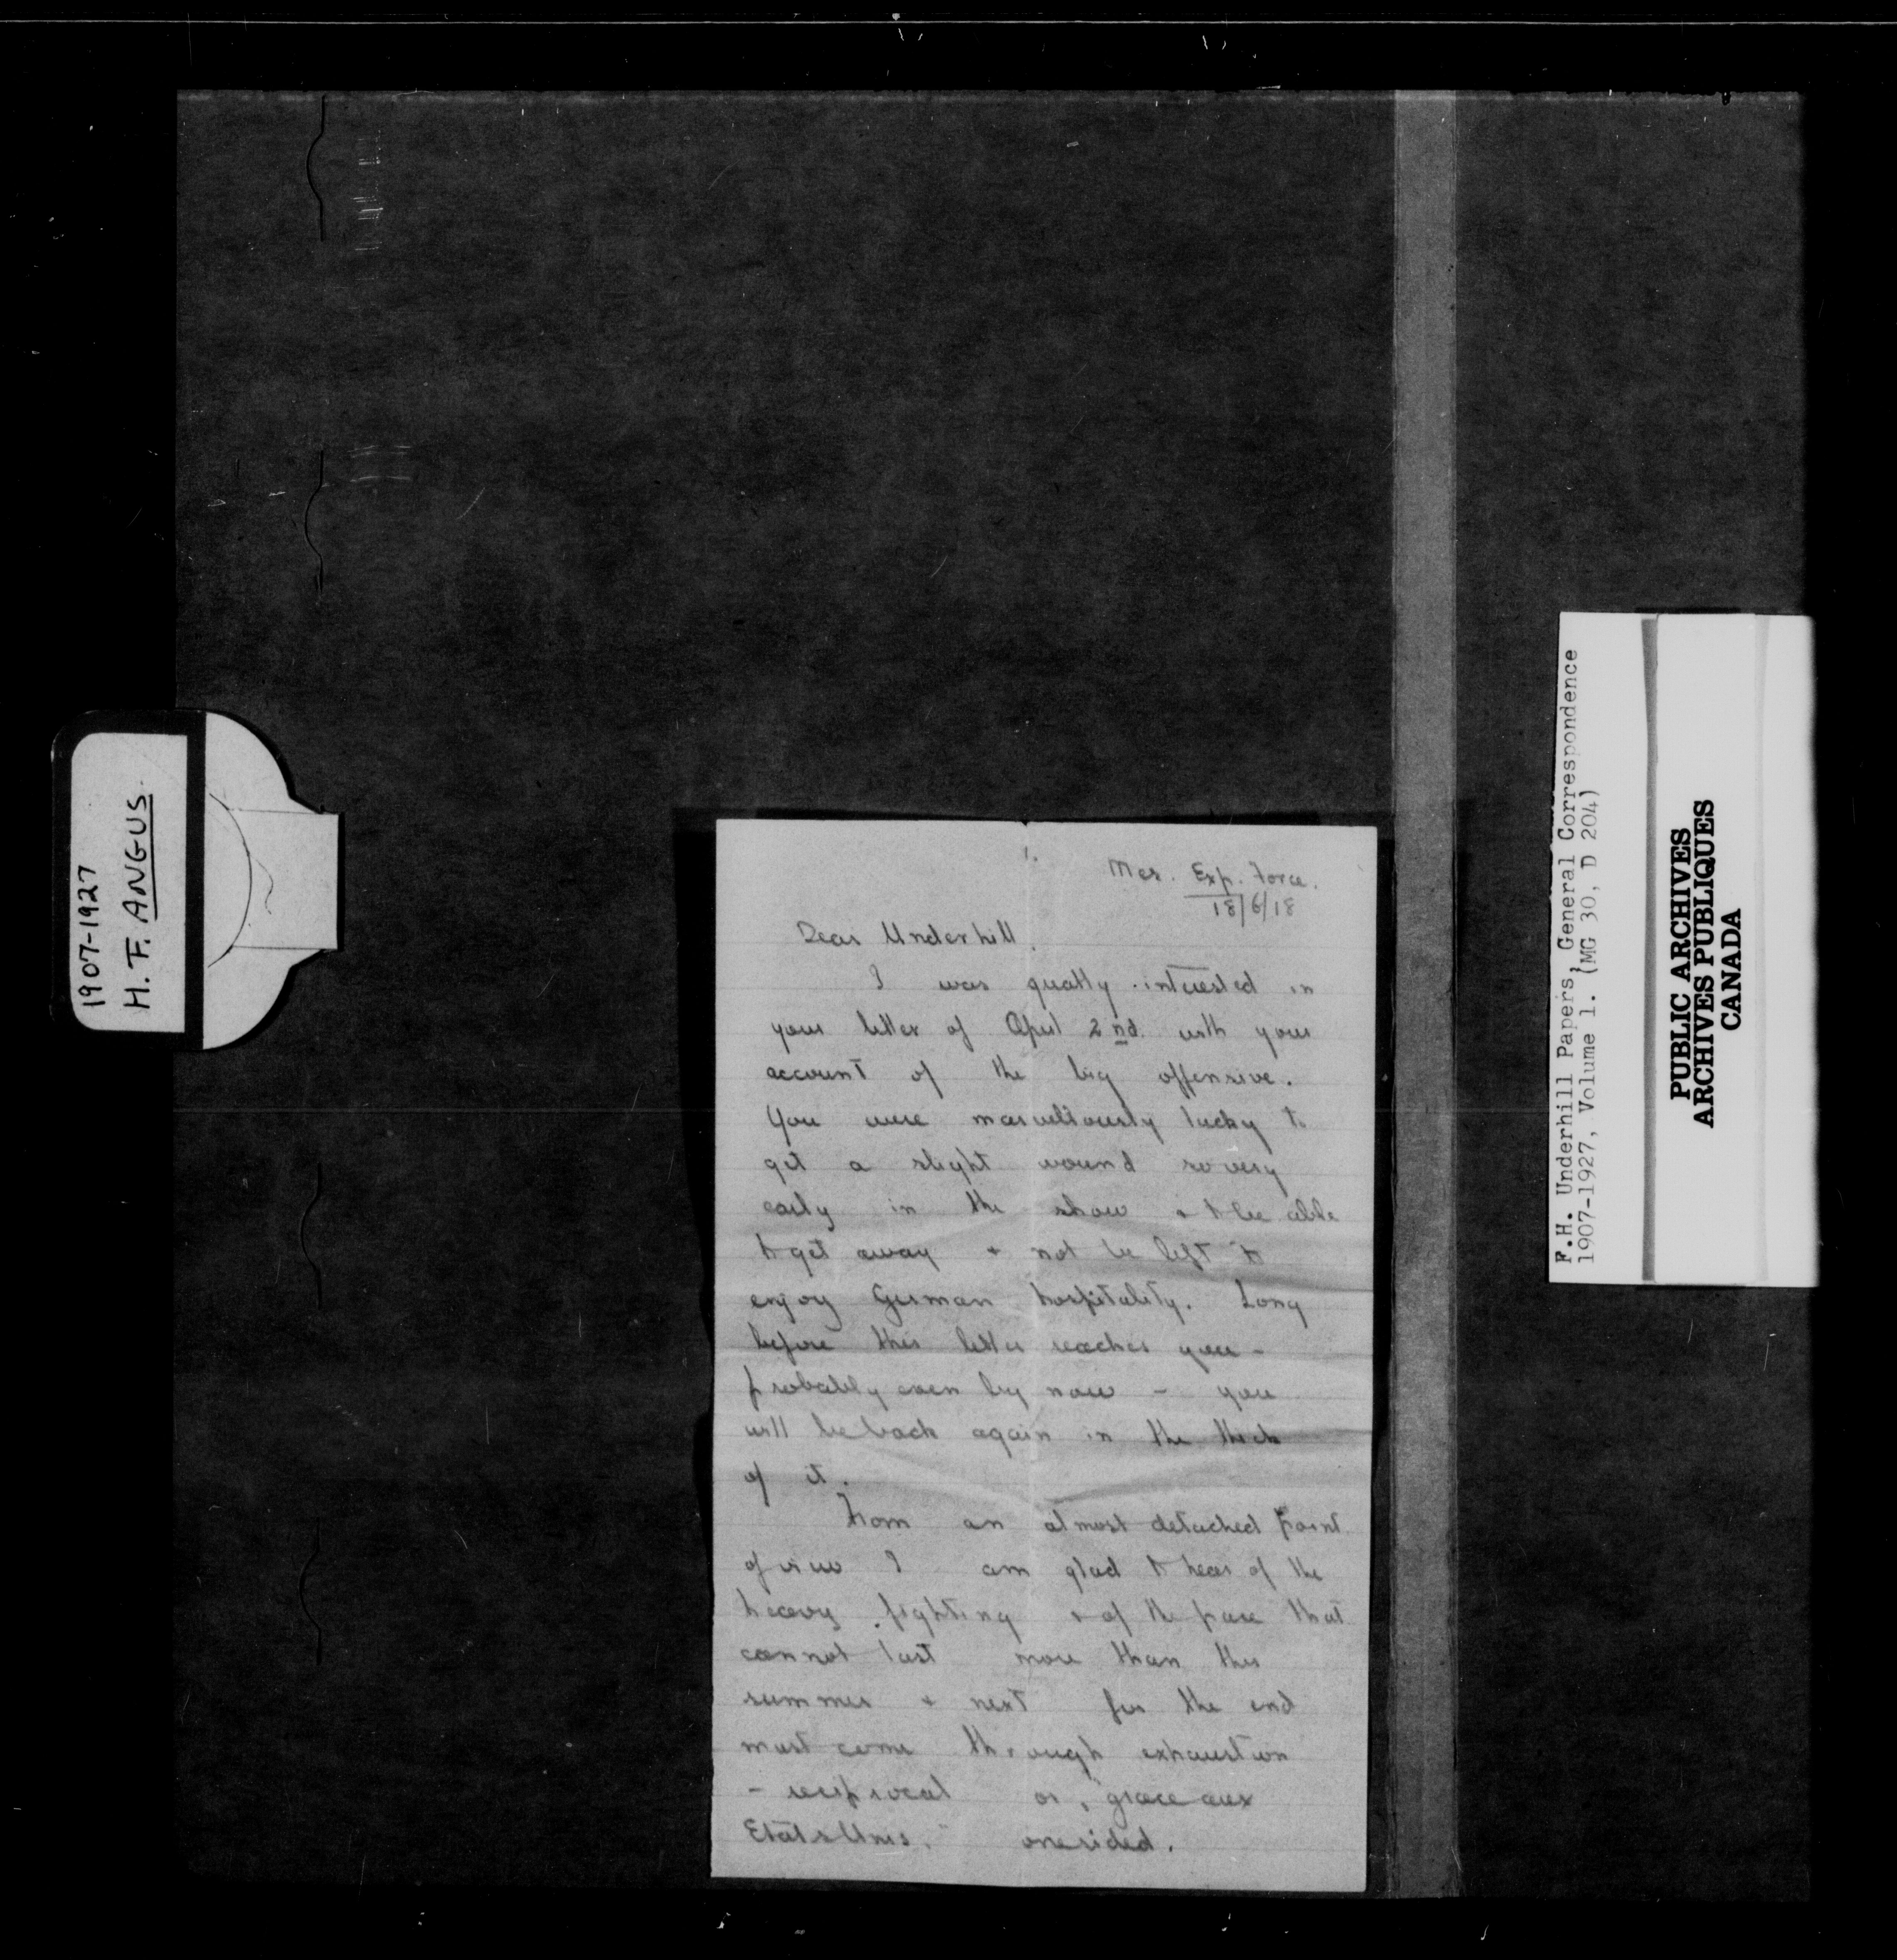 1907-1927
H. F. ANGUS.
1.
Mes. Exp. Force.
18/6/18
Dear Underhill.
I was greatly interested in
your letter of April 2nd. with your
account of the big offensive.
You were marvellously lucky to
get a slight wound so very
early in the show & to be able
to get away & not be left to
enjoy German hospitality. Long
before this letter reaches you -
probably even by now - you
will be back again in the thick
of it.
From an almost detached point
of view I am glad to hear of the
heavy fighting & of the pace that
cannot last more than this
summer & next for the end
must come through exhaustion
- reciprocal or, "grace aux
Etats Unis." onesided.
F.H. Underhill Papers, General Correspondence
1907-1927, Volume 1. (MG 30, D 204)
PUBLIC ARCHIVES
ARCHIVES PUBLIQUES
CANADA